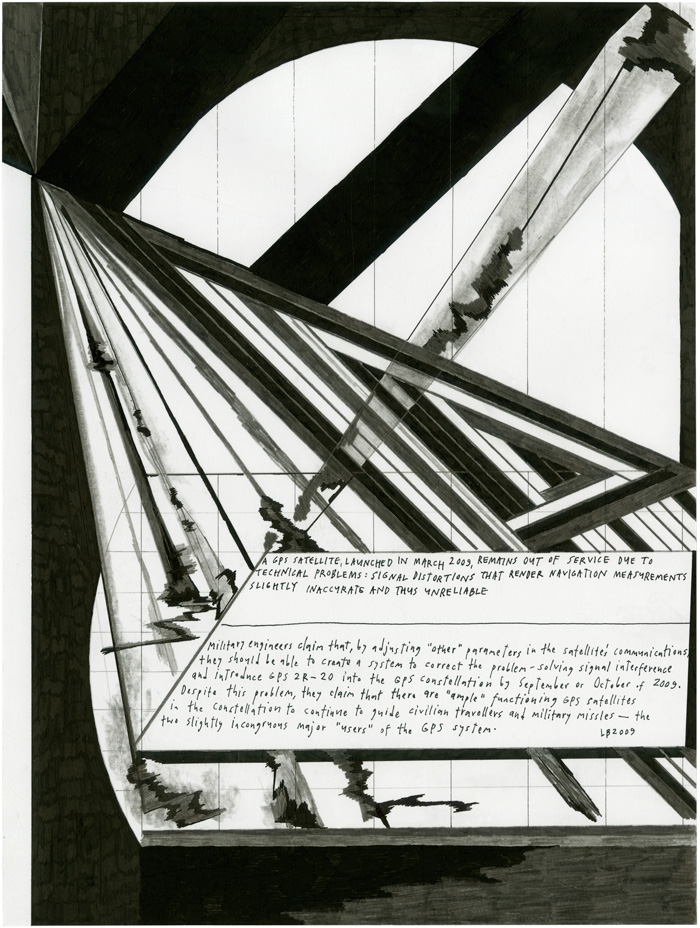 A GPS SATELLITE, LAUNCHED IN MARCH 2009, REMAINS OUT OF SERVICE DUE TO
TECHNICAL PROBLEMS: SIGNAL DISTORTIONS THAT RENDER NAVIGATION MEASUREMENTS
SLIGHTLY INACCURATE AND THUS UNRELIABLE
Military engineers claim that, by adjusting "other" parameters in the satellites' communications,
they should be able to create a system to correct the problem-solving signal interference
and introduce GPS 2R-20 into the GPS constellation by September or October of 2009.
Despite this problem, they claim that there are "ample" functioning GPS satellites
in the constellation to continue to guide civilian travellers and military missles — the
two slightly incongruous major "users" of the GPS system.
LB2009